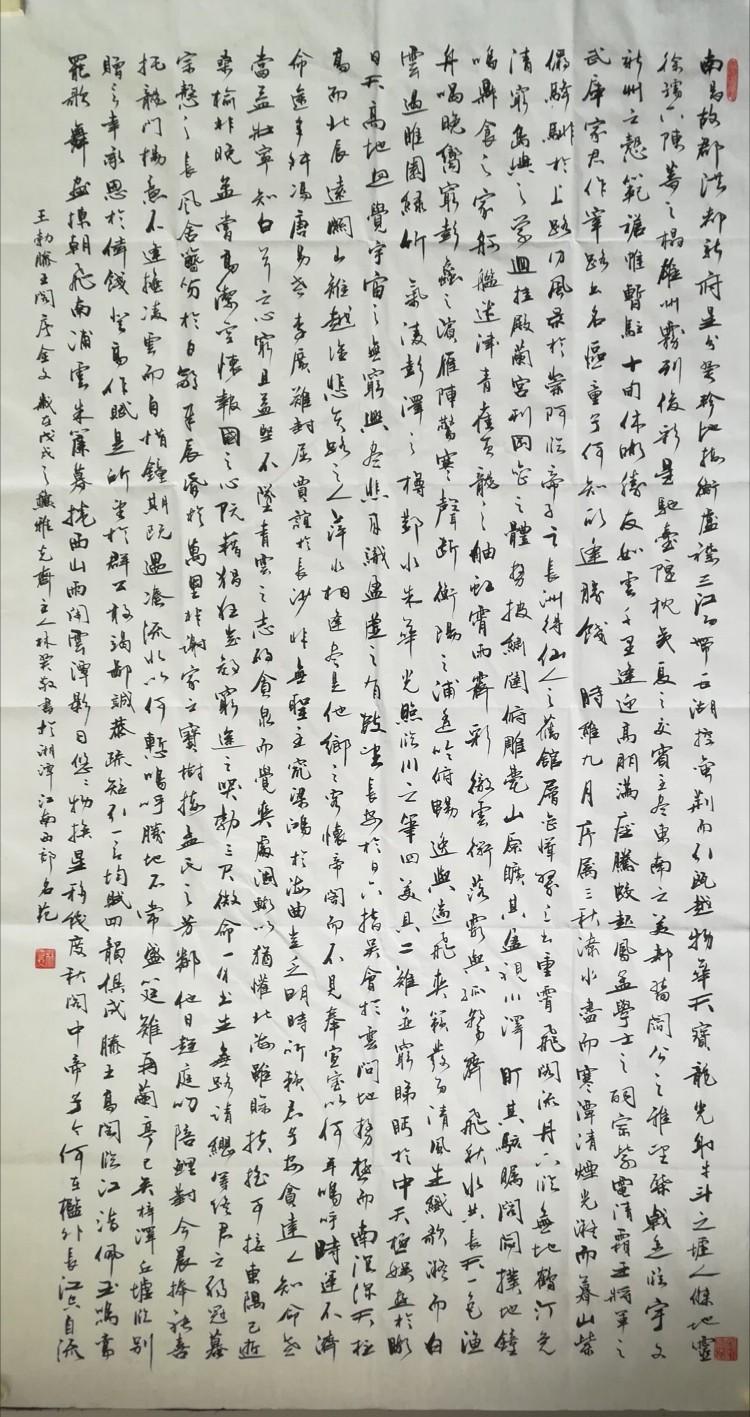 南昌故郡洪都新府星分翼軫地接衡廬襟三江而帶五湖控蠻荊而引甌越物華天寶龍光射牛斗之墟人傑地靈
徐孺下陳蕃之榻雄州霧列俊彩星馳臺隍枕夷夏之交賓主盡東南之美都督閻公之雅望棨戟遙臨宇文
新州之懿範襜帷暫駐十旬休暇勝友如雲千里逢迎高朋滿座騰蛟起鳳孟學士之詞宗紫電清霜王將軍之
武庫家君作宰路出名區童子何知躬逢勝餞 時維九月序屬三秋潦水盡而寒潭清煙光凝而暮山紫
儼驂騑於上路訪風景於崇阿臨帝子之長洲得仙人之舊館層巒聳翠上出重霄飛閣流丹下臨無地鶴汀鳧
渚窮島嶼之縈迴桂殿蘭宮列岡巒之體勢披繡闥俯雕甍山原曠其盈視川澤盱其駭矚閭閻撲地鐘
鳴鼎食之家舸艦迷津青雀黃龍之舳虹霄雨霽彩徹雲衢落霞與孤鶩齊飛秋水共長天一色漁
舟唱晚響窮彭蠡之濱雁陣驚寒聲斷衡陽之浦遙吟俯暢逸興遄飛爽籟發而清風生纖歌凝而白
雲遏睢園綠竹氣凌彭澤之樽鄴水朱華光照臨川之筆四美具二難並窮睇眄於中天極娛遊於暇
日天高地迥覺宇宙之無窮興盡悲來識盈虛之有數望長安於日下指吳會於雲間地勢極而南溟深天柱
高而北辰遠關山難越誰悲失路之人萍水相逢盡是他鄉之客懷帝閽而不見奉宣室以何年嗚呼時運不濟
命途多舛馮唐易老李廣難封屈賈誼於長沙非無聖主竄梁鴻於海曲豈乏明時所賴君子安貧達人知命老
當益壯寧知白首之心窮且益堅不墜青雲之志酌貪泉而覺爽處涸轍以猶懽北海雖賒扶搖可接東隅已逝
桑榆非晚孟嘗高潔空懷報國之心阮籍猖狂豈效窮途之哭勃三尺微命一介書生無路請纓等終君之弱冠慕
宗愨之長風舍簪笏於百齡奉晨昏於萬里非謝家之寶樹接孟氏之芳鄰他日趨庭叨陪鯉對今晨捧袂喜
托龍門楊意不逢撫凌雲而自惜鍾期既遇奏流水以何慚嗚呼勝地不常盛筵難再蘭亭已矣梓澤丘墟臨別
贈言幸承恩於偉餞登高作賦是所望於群公敢竭鄙誠恭疏短引一言均賦四韻俱成滕王高閣臨江渚佩玉鳴鸞
罷歌舞畫棟朝飛南浦雲朱簾暮捲西山雨閑雲潭影日悠々物換星移幾度秋閣中帝子今何在檻外長江空自流
王勃滕王閣序全文 歲在戊戌之雅克齋主人林敬書於湘潭江南西郡名苑